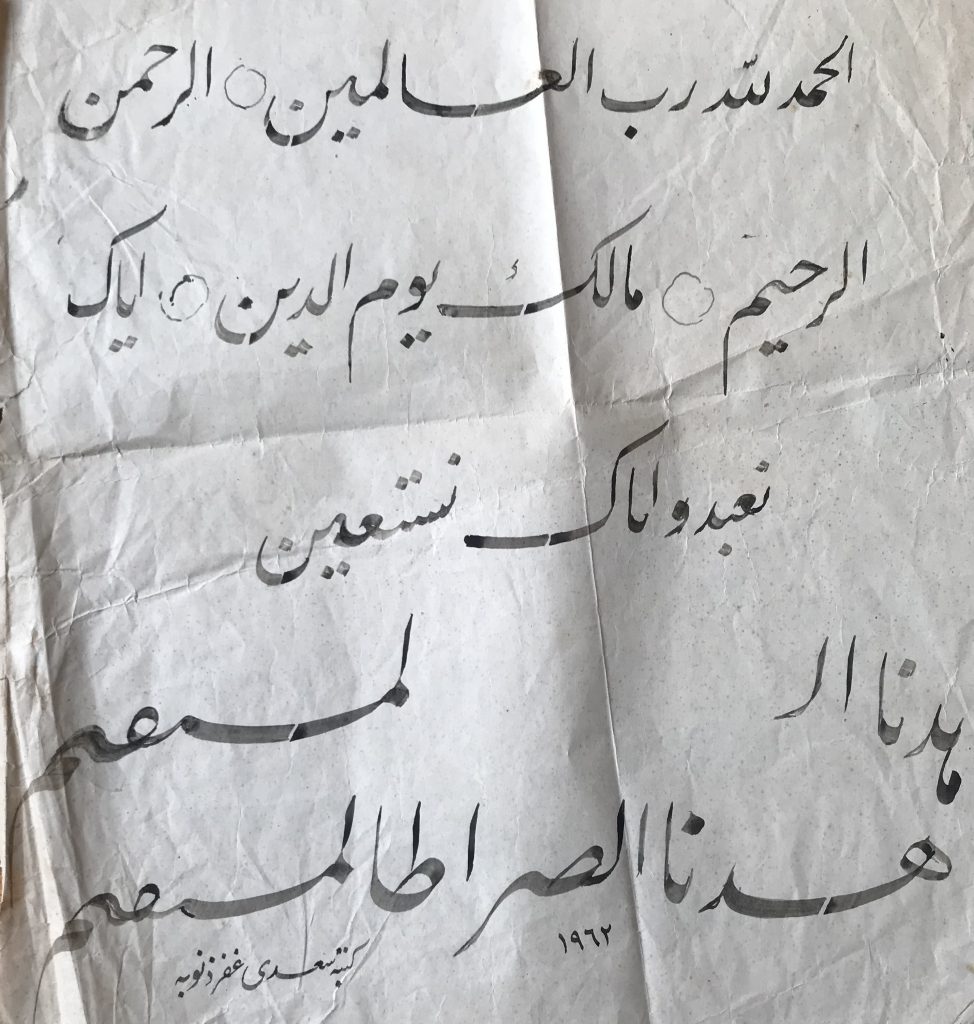 الحمد لله رب العالمين ○ الرحمن
الرحيم ○ مالك يوم الدين ○ اياك
نعبد واياك نستعين
هدنا ا لر لمستقيم
هدنا الصراط المستقيم
١٩٦٢
كتبه سعدي غفر ذنوبه